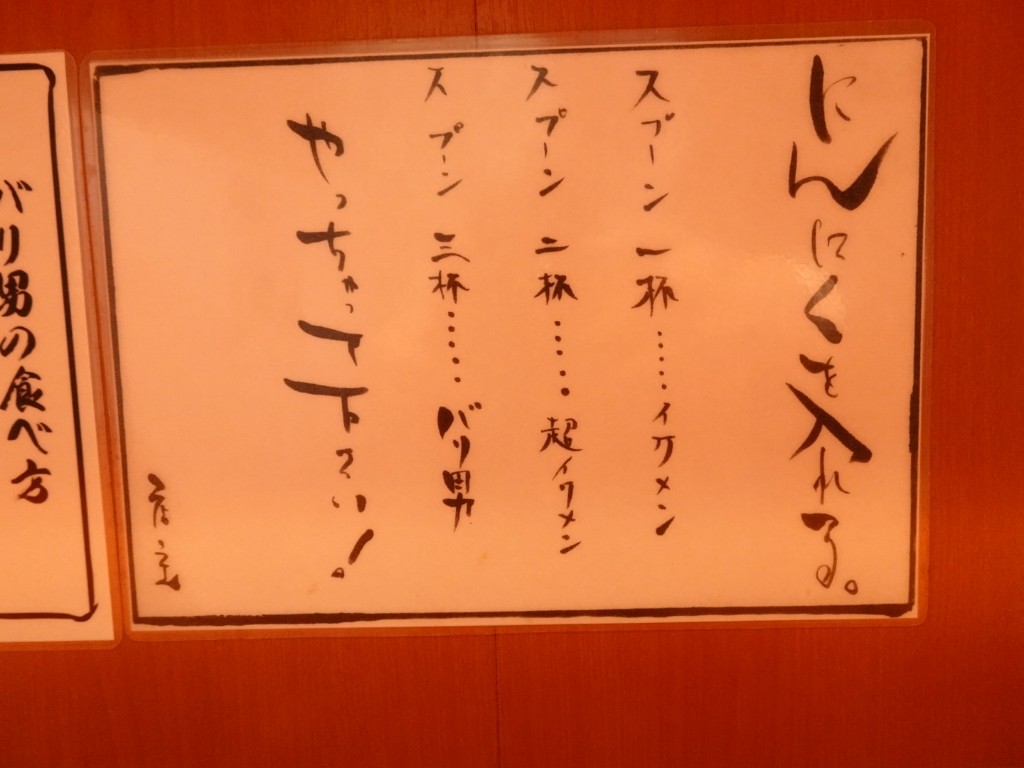 にんにくを入れる。
スプーン一杯……イケメン
スプーン二杯……超イケメン
スプーン三杯……バリ男
やっちゃって下さい!
店主
バリ男の食べ方